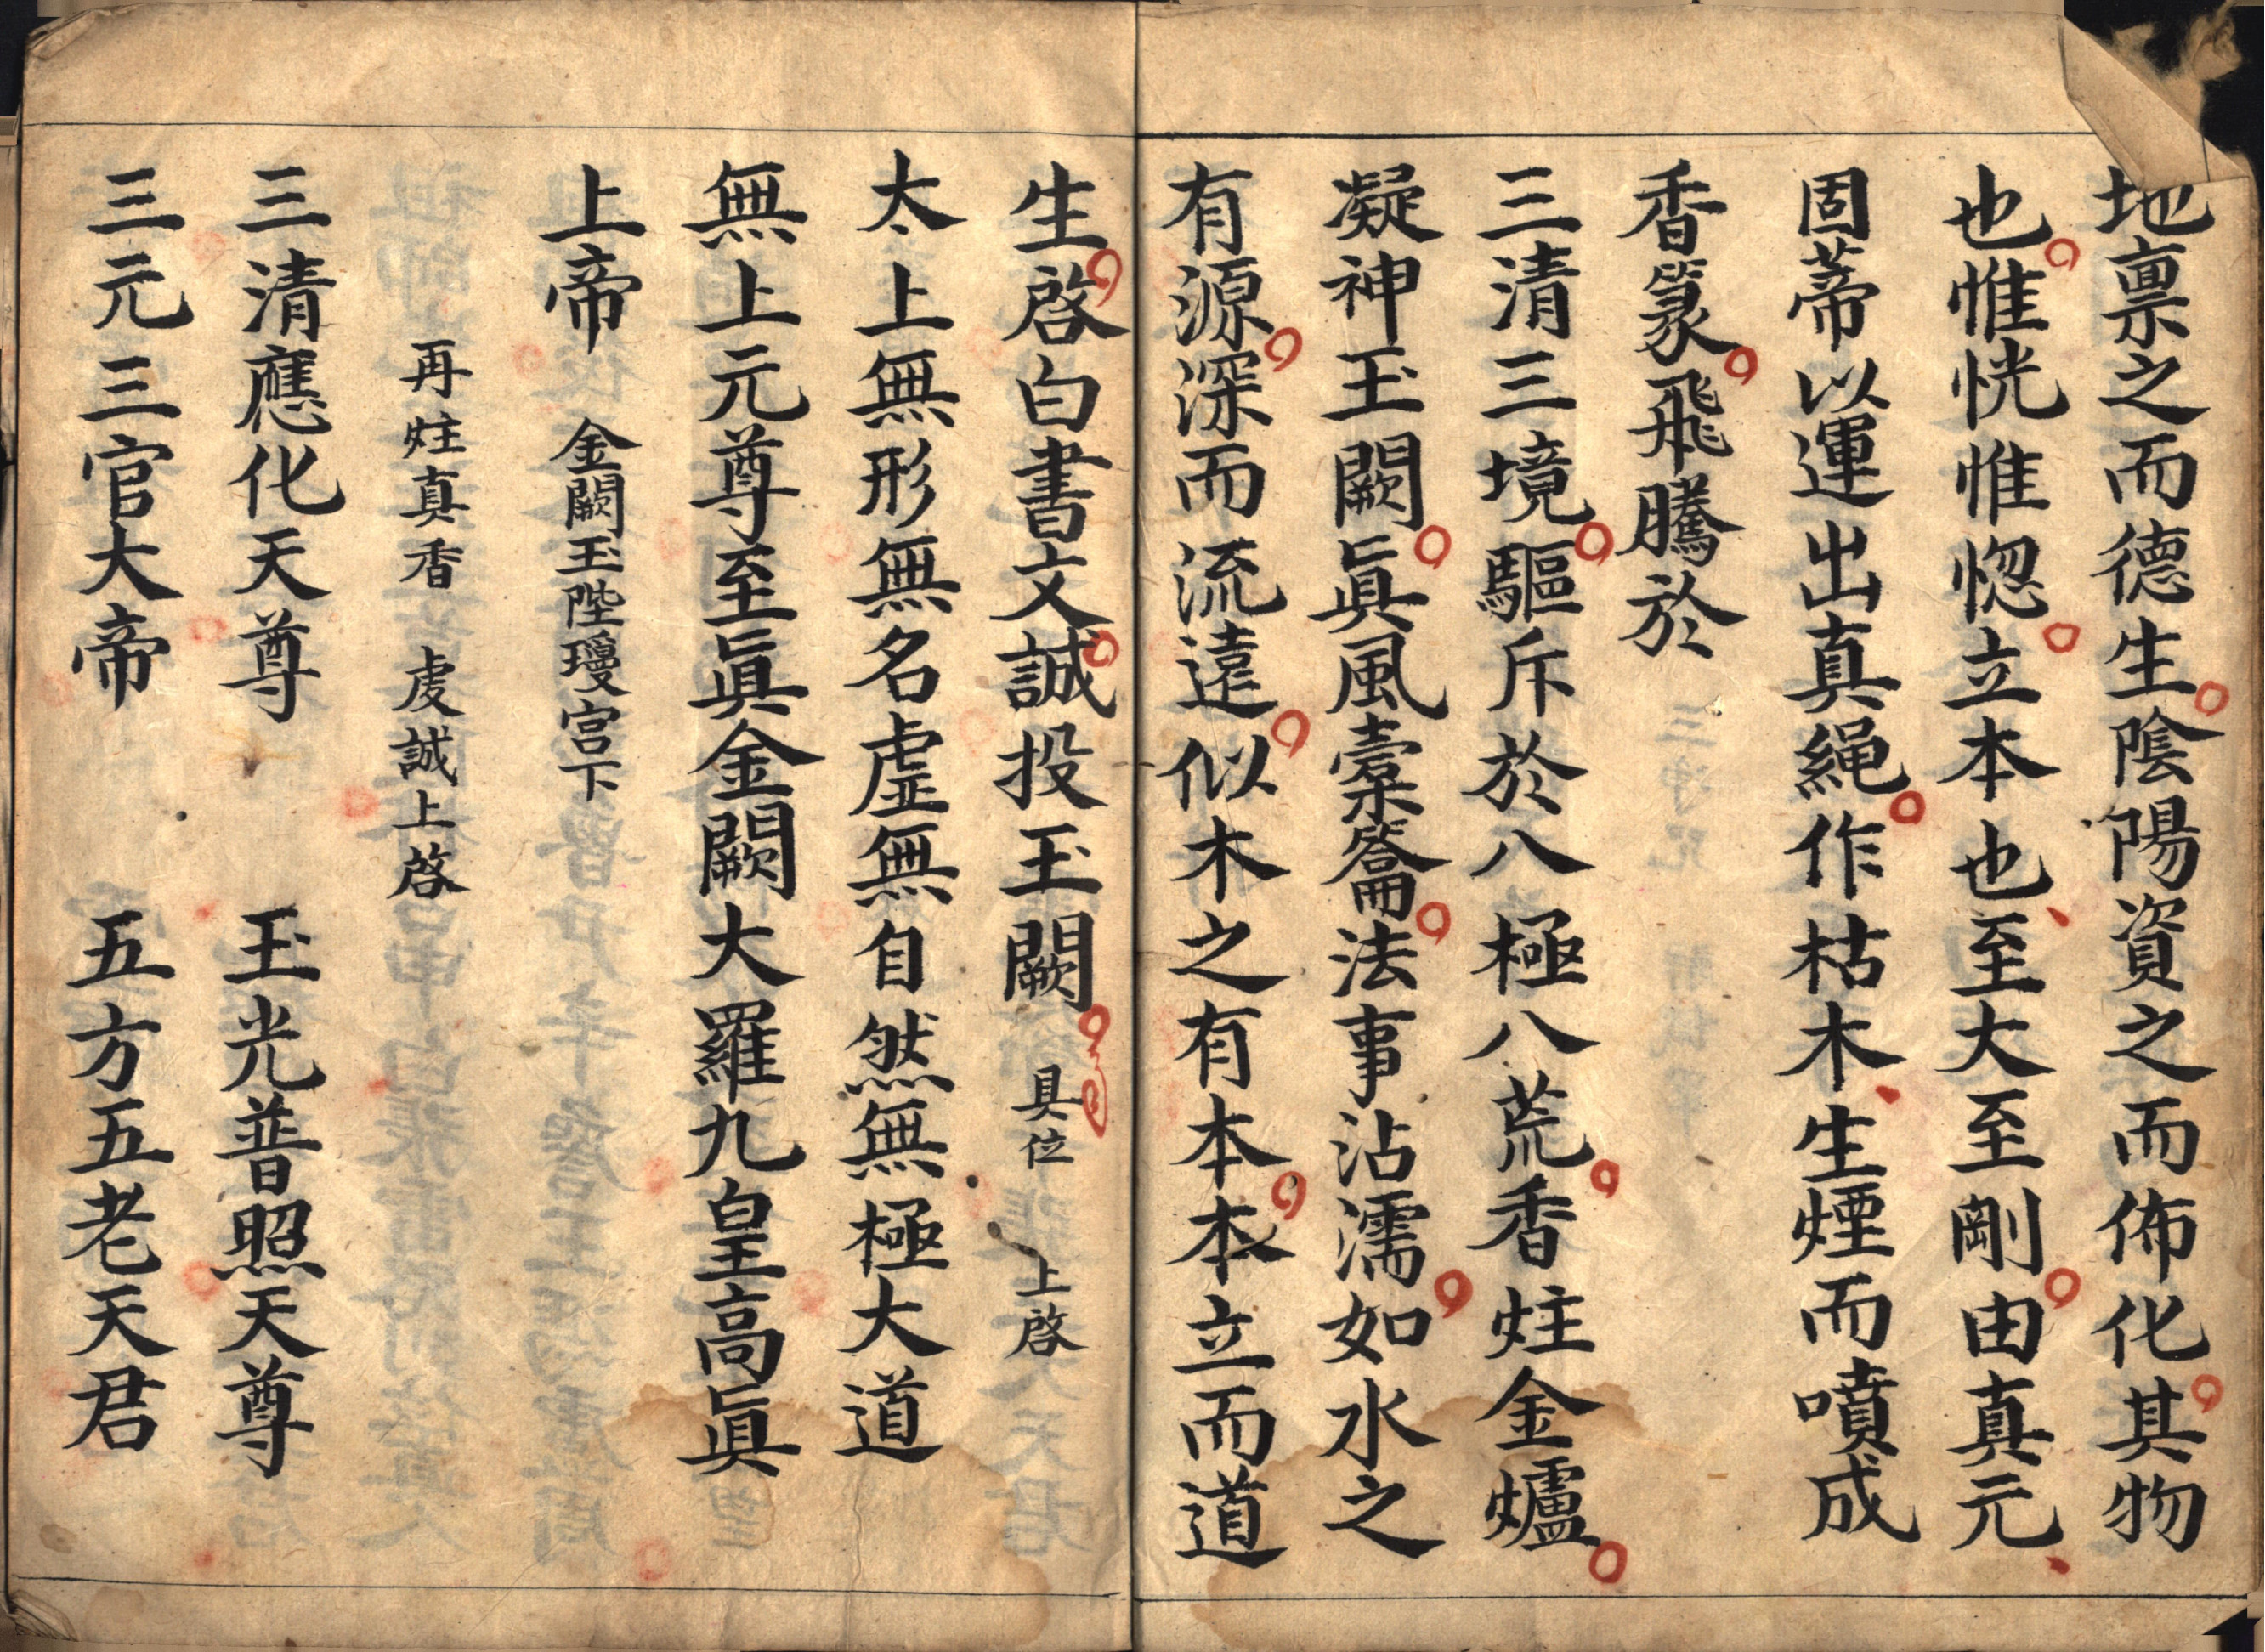 地禀之而德生陰陽資之而佈化其物
也惟恍惟惚立本也至大至剛由真元
固蒂以運出真繩作枯木生煙而噴成
香篆飛騰於
三清三境驅斥於八極八荒香炷金爐
凝神玉闕眞風橐籥法事沾濡如水之
有源深而流遠似木之有本本立而道
生啓白書文誠投玉闕 具位 上啓
太上無形無名虛無自然無極大道
無上元尊至眞金闕大羅九皇高眞
上帝 金闕玉陛瓊宮下
再炷真香 虔誠上啓
三清應化天尊 玉光普照天尊
三元三官大帝 五方五老天君